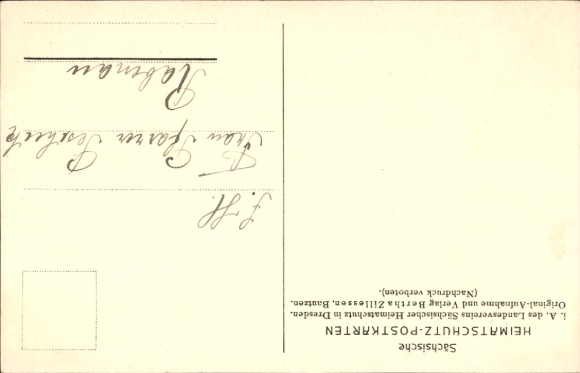 Sächsische
HEIMATSCHUTZ-POSTKARTEN
i. A. des Landesvereins Sächsischer Heimatschutz in Dresden.
Original-Aufnahme und Verlag Bertha Zillessen, Bautzen.
(Nachdruck verboten).
S. H.
Frau Pfarrer
Rabenau